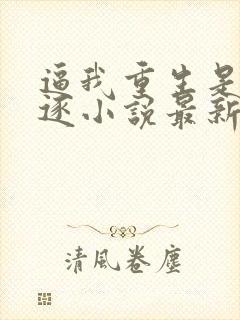 逼我重生是
逐小說最新
清風卷塵